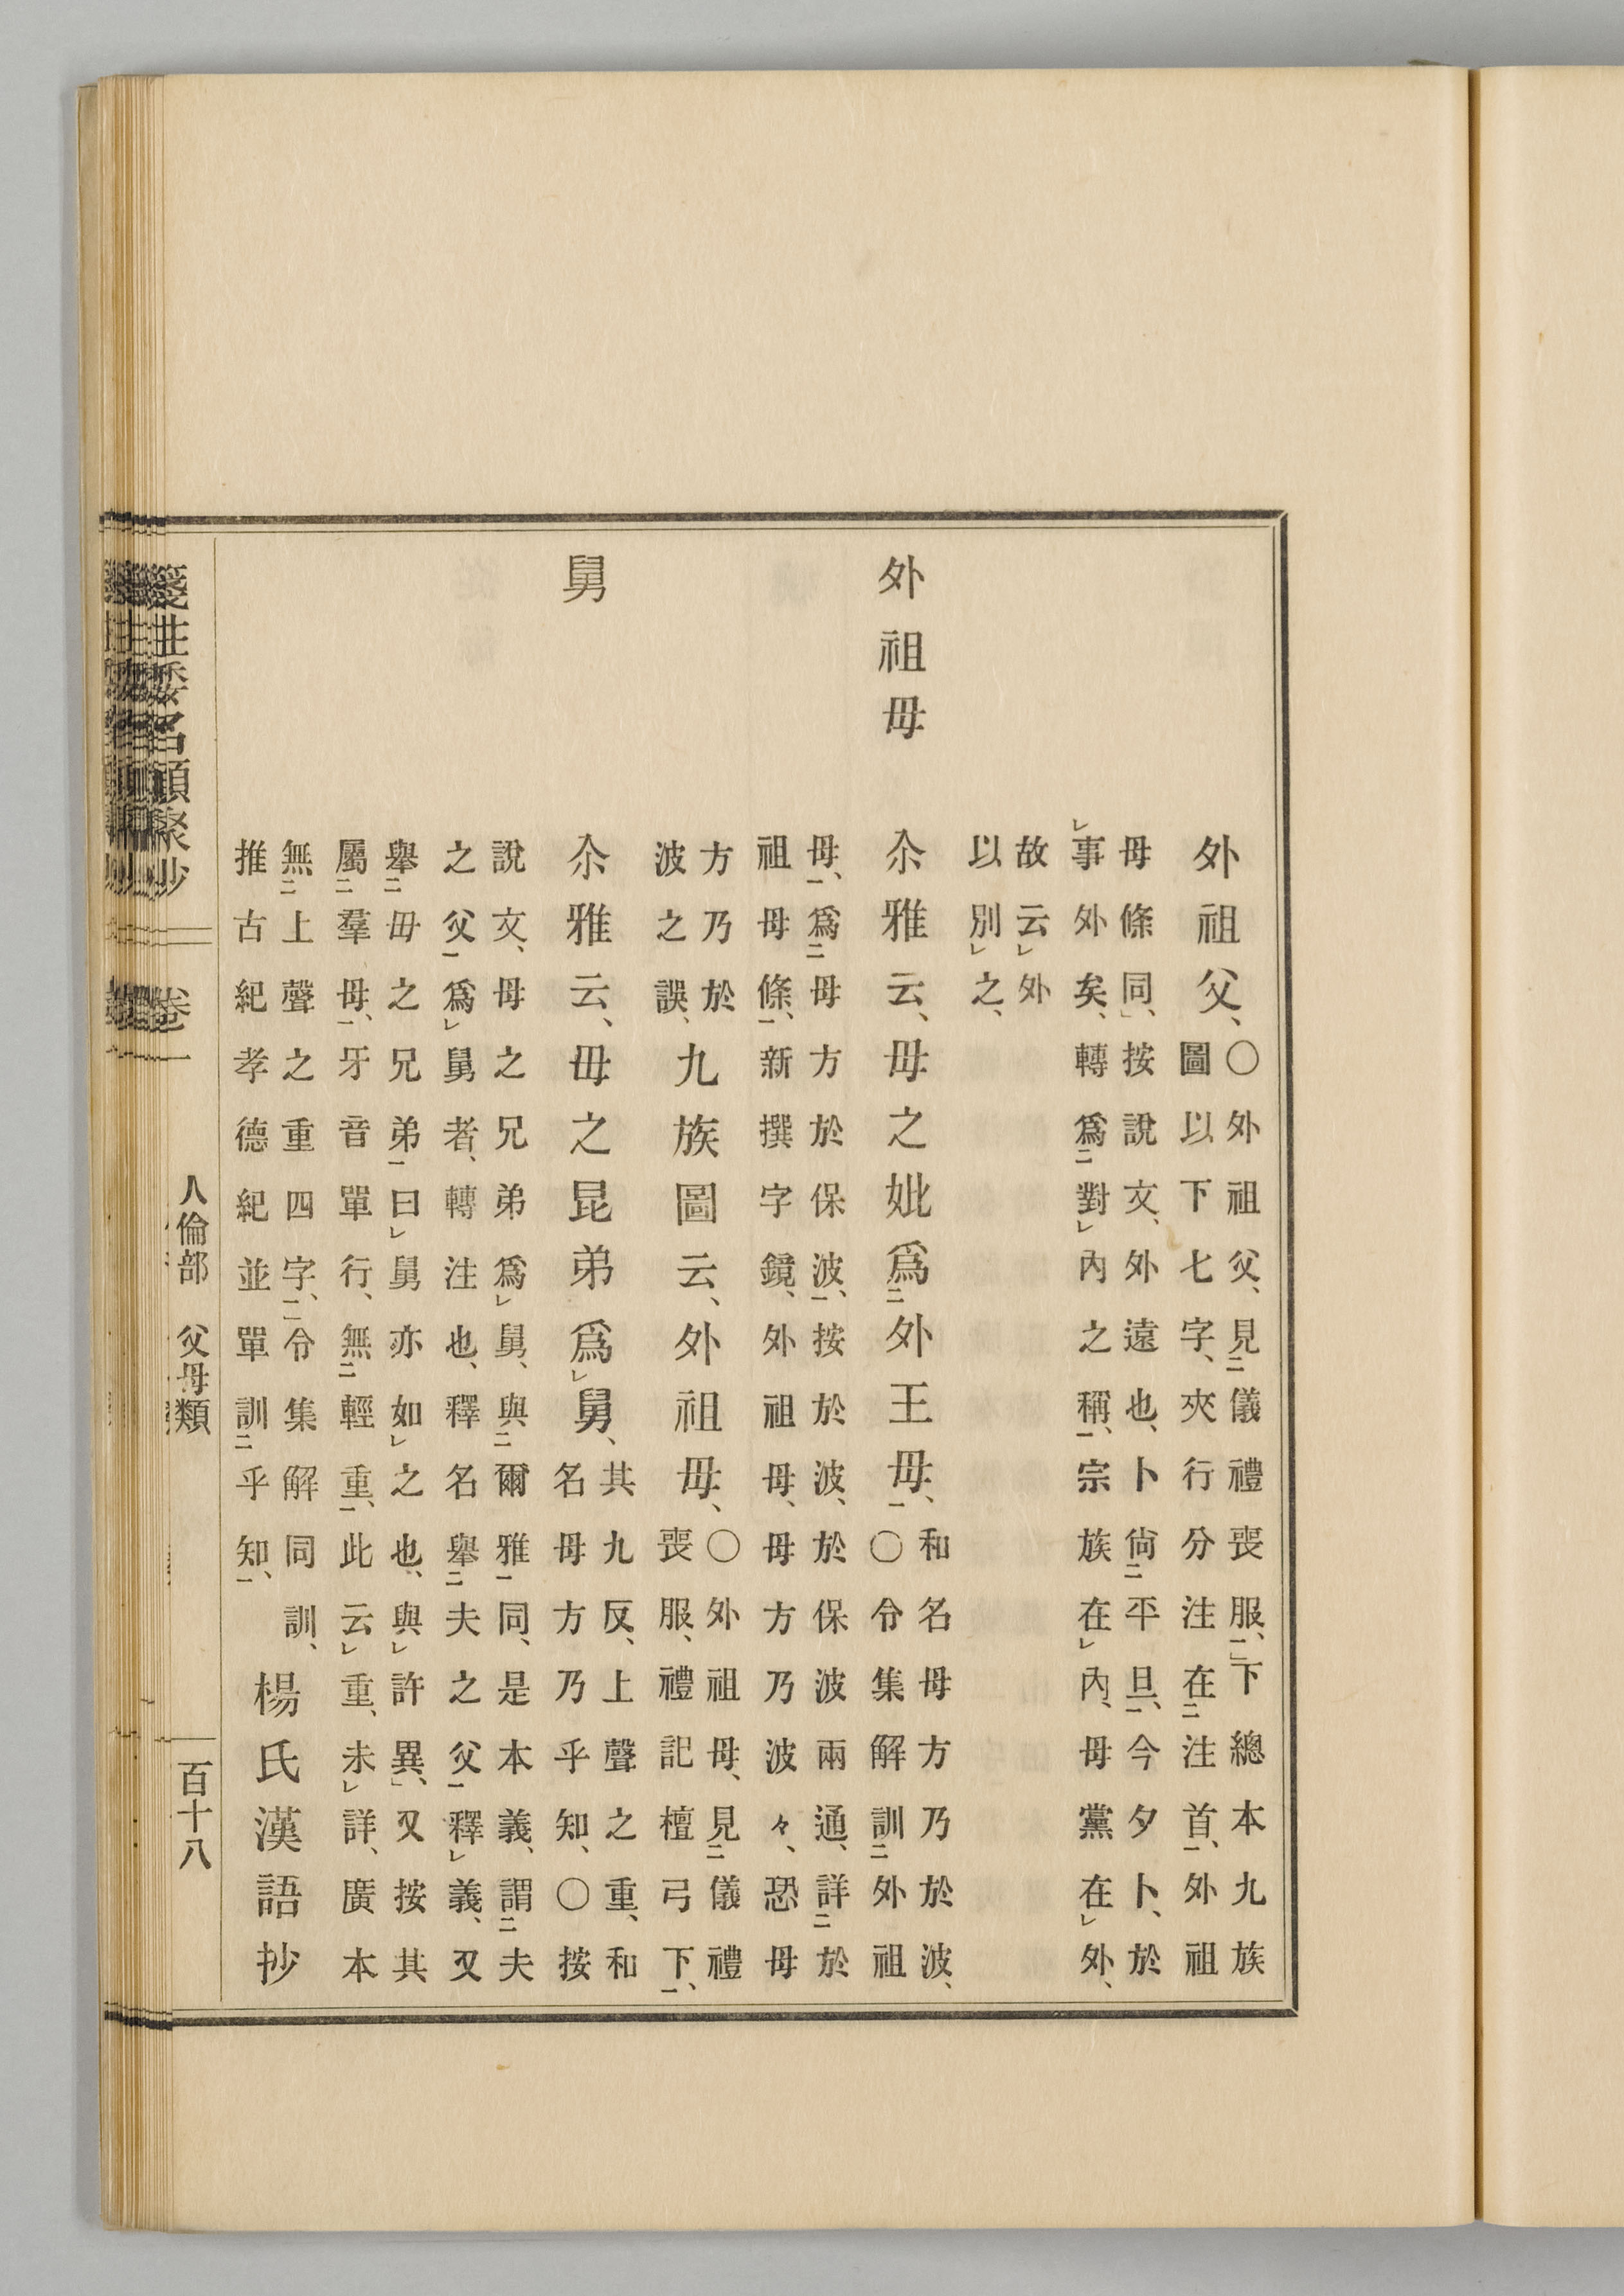 外祖父、〇外祖父、見儀禮喪服、下總本九族
圖以下七字、夾行分注在注首、外祖
母條同、按說文、外遠也、卜尙平旦、今夕卜、於
事外矣、轉爲對內之稱、宗族在內、母黨在外、
故云外
以別之、
外祖母
尒雅云、母之妣爲外王母、和名母方乃於波、
〇令集解訓外祖
母、爲母方於保波、按於波、於保波兩通、詳於
祖母條、新撰字鏡、外祖母、母方乃波々、恐母
方乃於
波之誤、
九族圖云、外祖母、〇外祖母、見儀禮
喪服、禮記檀弓下、
舅
尒雅云、母之昆弟爲舅、其九反、上聲之重、和
名母方乃乎知、〇按
說文、母之兄弟爲舅、與爾雅同、是本義、謂夫
之父爲舅者、轉注也、釋名擧夫之父釋義、又
擧母之兄弟曰舅亦如之也、與許異、又按其
屬羣母、牙音單行、無輕重、此云重、未詳、廣本
無上聲之重四字、令集解同訓、
推古紀孝德紀並單訓乎知、
楊氏漢語抄
卷一
人倫部 父母類
百十八